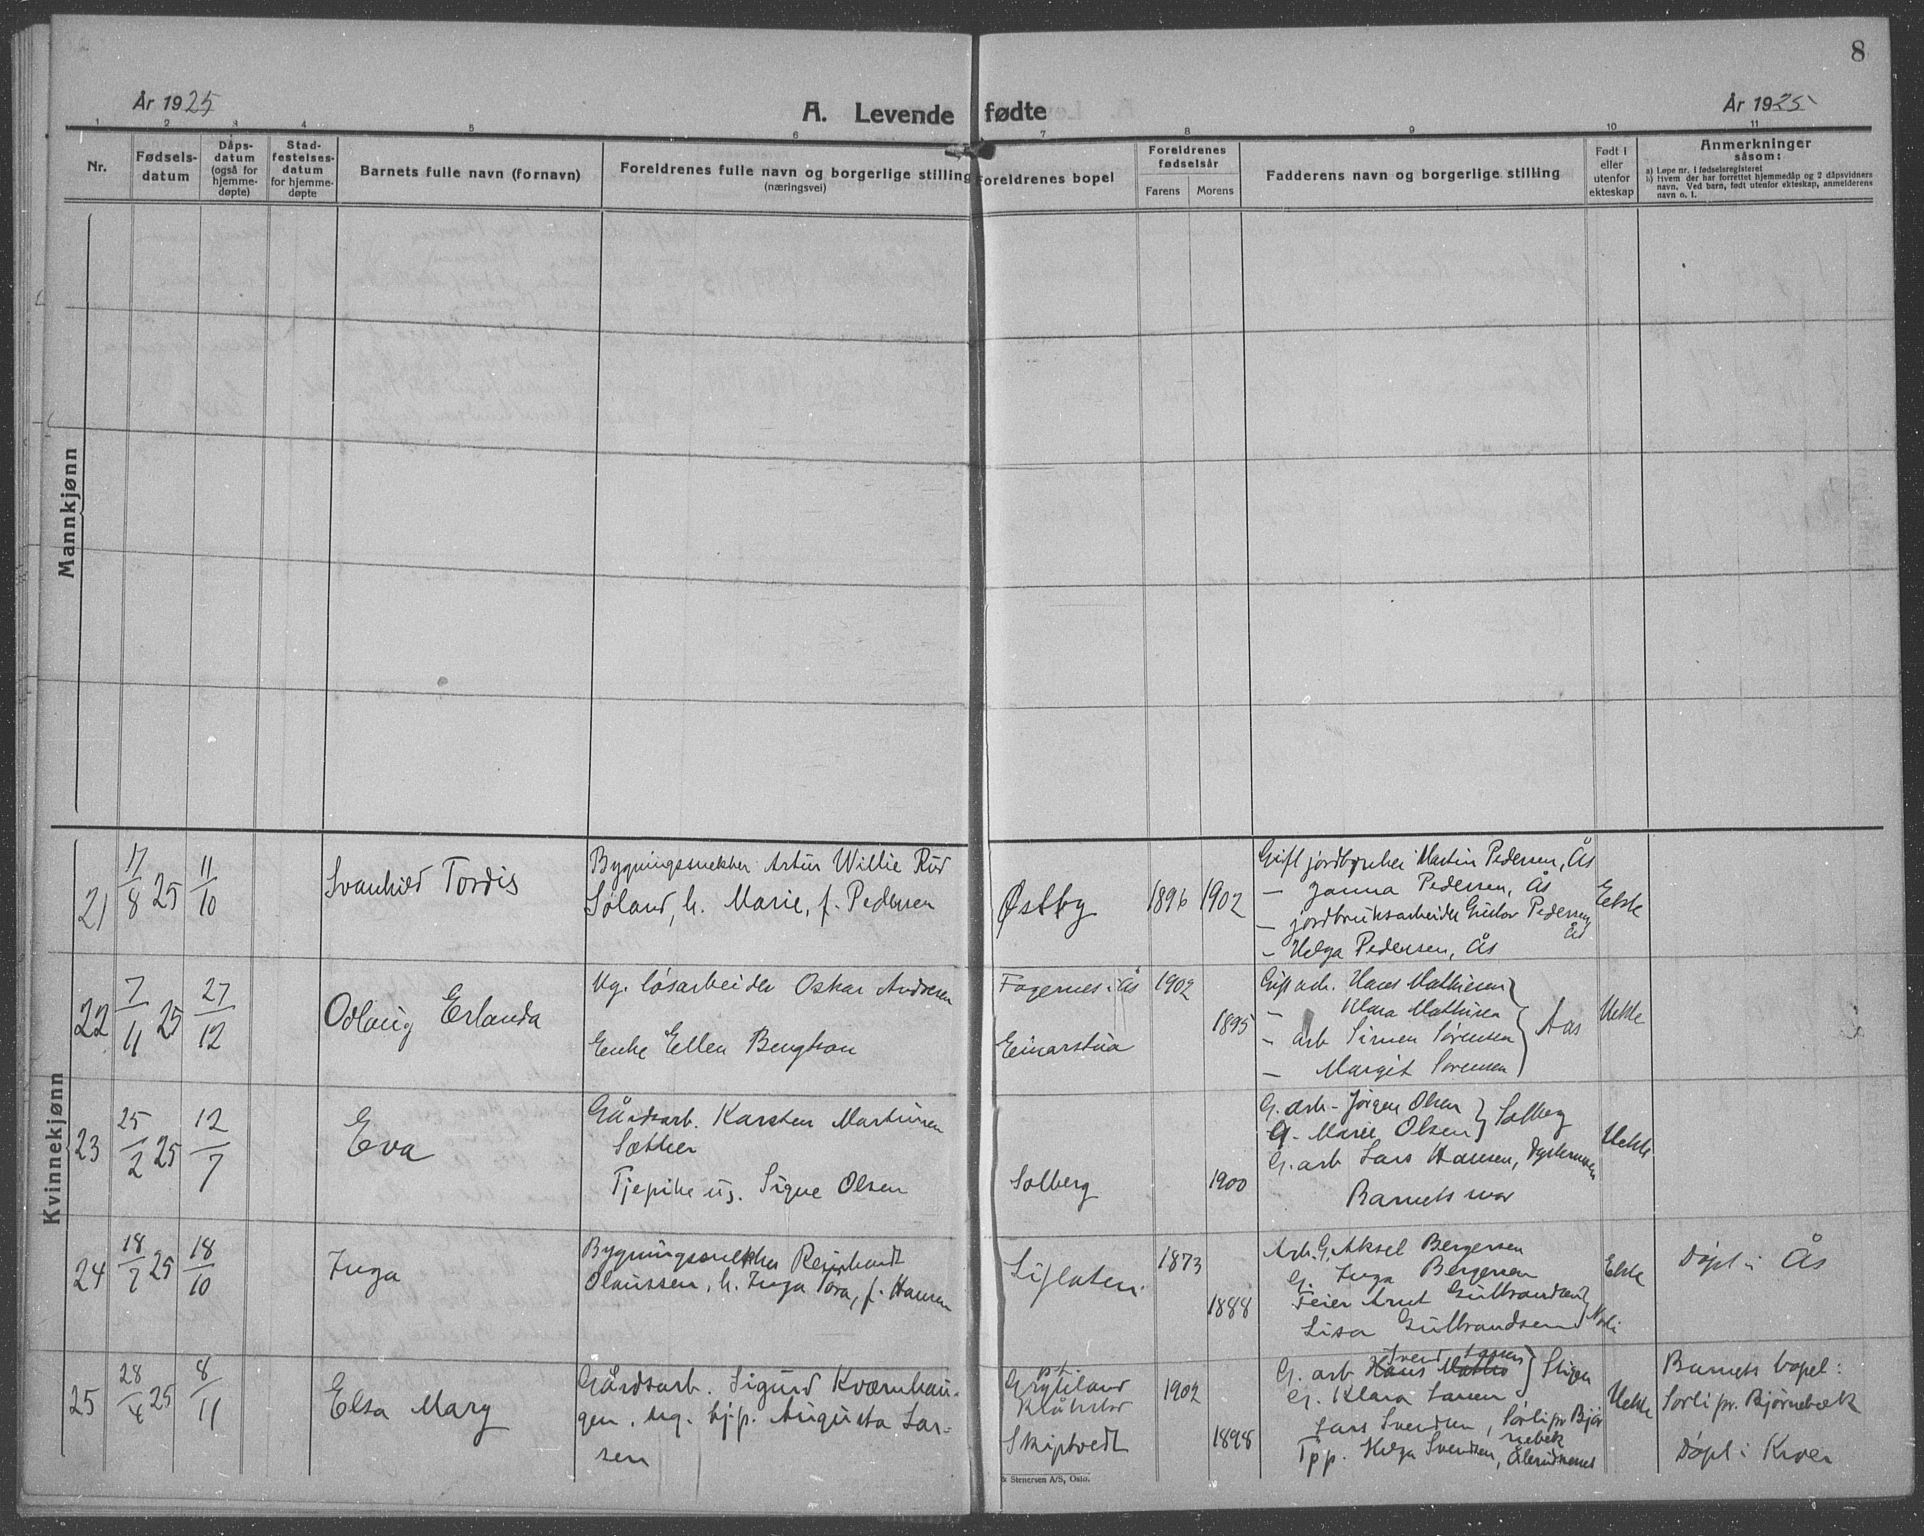 8
År 1925
A. Levende fødte
År 1925
1 2 3 4 5 6 7 8 9 10 11
Nr.
Fødsels-
datum
Dåps-
datum
(også for
hjemme-
døpte)
Stad-
festelses-
datum
for hjemme-
døpte
Barnets fulle navn (fornavn)
Foreldrenes fulle navn og borgerlige stilling
(næringsvei)
Foreldrenes bopel
Foreldrenes
fødselsår
Farens
Morens
Fadderens navn og borgerlige stilling
Født i
eller
utenfor
ekteskap
Anmerkninger
såsom:
a) Løpe nr. i fødselsregisteret
b) Hvem der har forrettet hjemmedåp og 2 dåpsvidners
navn. Ved barn, født utenfor ekteskap, anmelderens
navn o. l.
Mannkjønn
Kvinnekjønn
21
17/8 25
11/10
Svanhild Tordis
Bygningssnekker Artur Willie Rud
Søland, h. Marie, f. Pedersen
Østby
1896
1902
Gift jordbruker Martin Pedersen, Ås
— Janna Pedersen, Ås
— jordbruksarbeider Gustav Pedersen,
Ås
— Helga Pedersen, Ås
Ekte
22
7/11 25
27/12
Odlaug Erlanda
Ug. løsarbeider Oskar Andresen
Enke Ellen Bengtson
Fagernes i Ås
Einarstua
1902
1895
Gift arb. Hans Mathisen
— Klara Mathisen
— arb Simen Sørensen
— Margit Sørensen
Aas
Uekte
23
25/2 25
12/7
Eva
Gårdsarb. Karsten Martinsen
Sætther
Tjepike ug. Signe Olsen
Solberg
1900
G. arb. Jørgen Olsen
G. Marie Olsen
Solberg
G. arb Lars Hansen,
Barnets mor
Uekte
24
18/7 25
18/10
Inga
Bygningssnekker Reinhardt
Olaussen, h. Inga Tora, f. Hansen
Liflaten
1873
1888
Arb. G. Aksel Bergersen
G. Inga Bergersen
Feier Arnt Gulbrandsen
Lisa Gulbrandsen
Ekte
Døpt i Ås
25
28/4 25
8/11
Elsa Mary
Gårdsarb. Sigurd Kværnhau-
gen, ug. hjp. Augusta Lar-
sen
Skiptvedt
1902
1898
G. arb Hans
G. Klara Larsen
Lars Svendsen, Sørli pr Bjør
nebek
Tpp. Helga Svendsen,
Uekte
Barnets bopel:
Sørli pr. Bjørnebæk
Døpt i Kroer
& Stenersen A/S, Oslo.